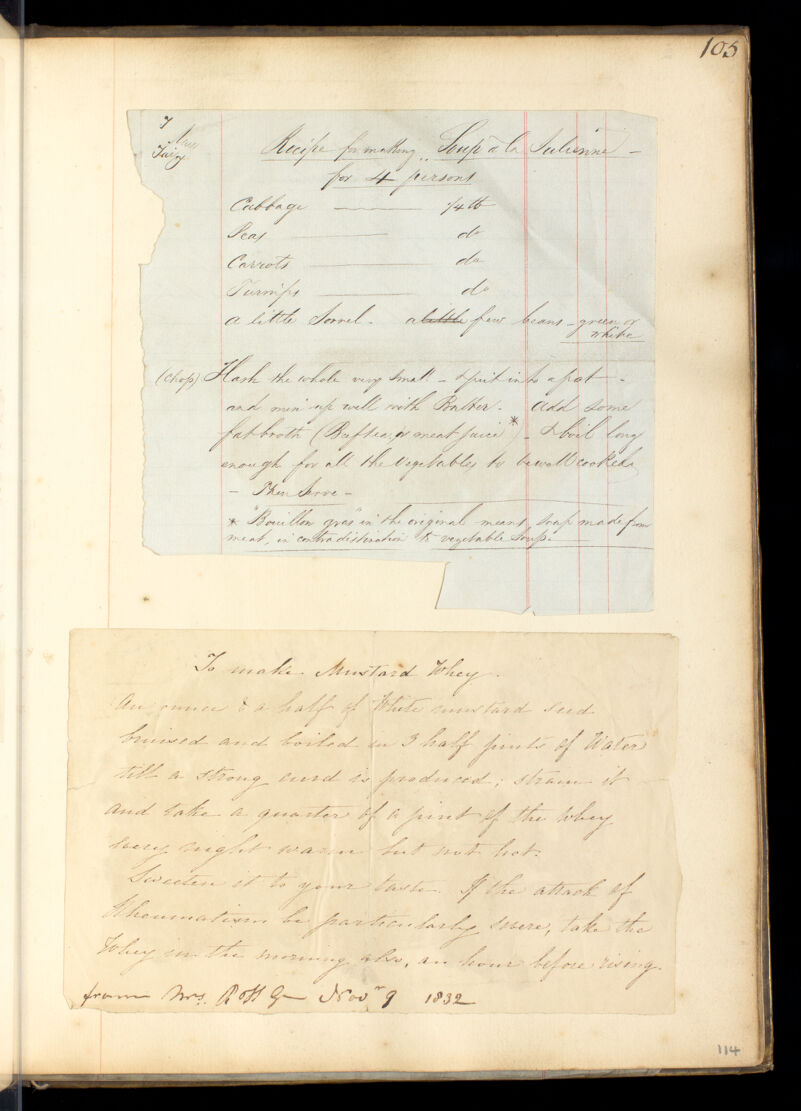 105
Recipe for making "Soup à la Julienne -
for 4 persons
Cabbage — 1/4 lb
Peas — do
Carrots — do
Turnips — do
a little Sorrel. a little few beans - green or
white
(Chop) Hash the whole very small - & put into a pot -
and mix up well with Butter. Add some
fat broth (Beef tea, or meat juice)* - & boil long
enough for all the vegetables to be well cooked,
- Then Serve -
* "Bouillon gras" in the original means, soup made from
meat, in contradistinction to vegetable soup.
To make Mustard Whey.
An ounce & a half of White mustard seed
bruised and boiled in 3 half pints of Water
till a strong curd is produced; strain it
and take a quarter of a pint of the Whey
every night warm but not hot.
Sweeten it to your taste. If the attack of
Rheumatism be particularly severe, take the
Whey in the morning also, an hour before rising.
from Mrs. R H G Novr 9 1832
114